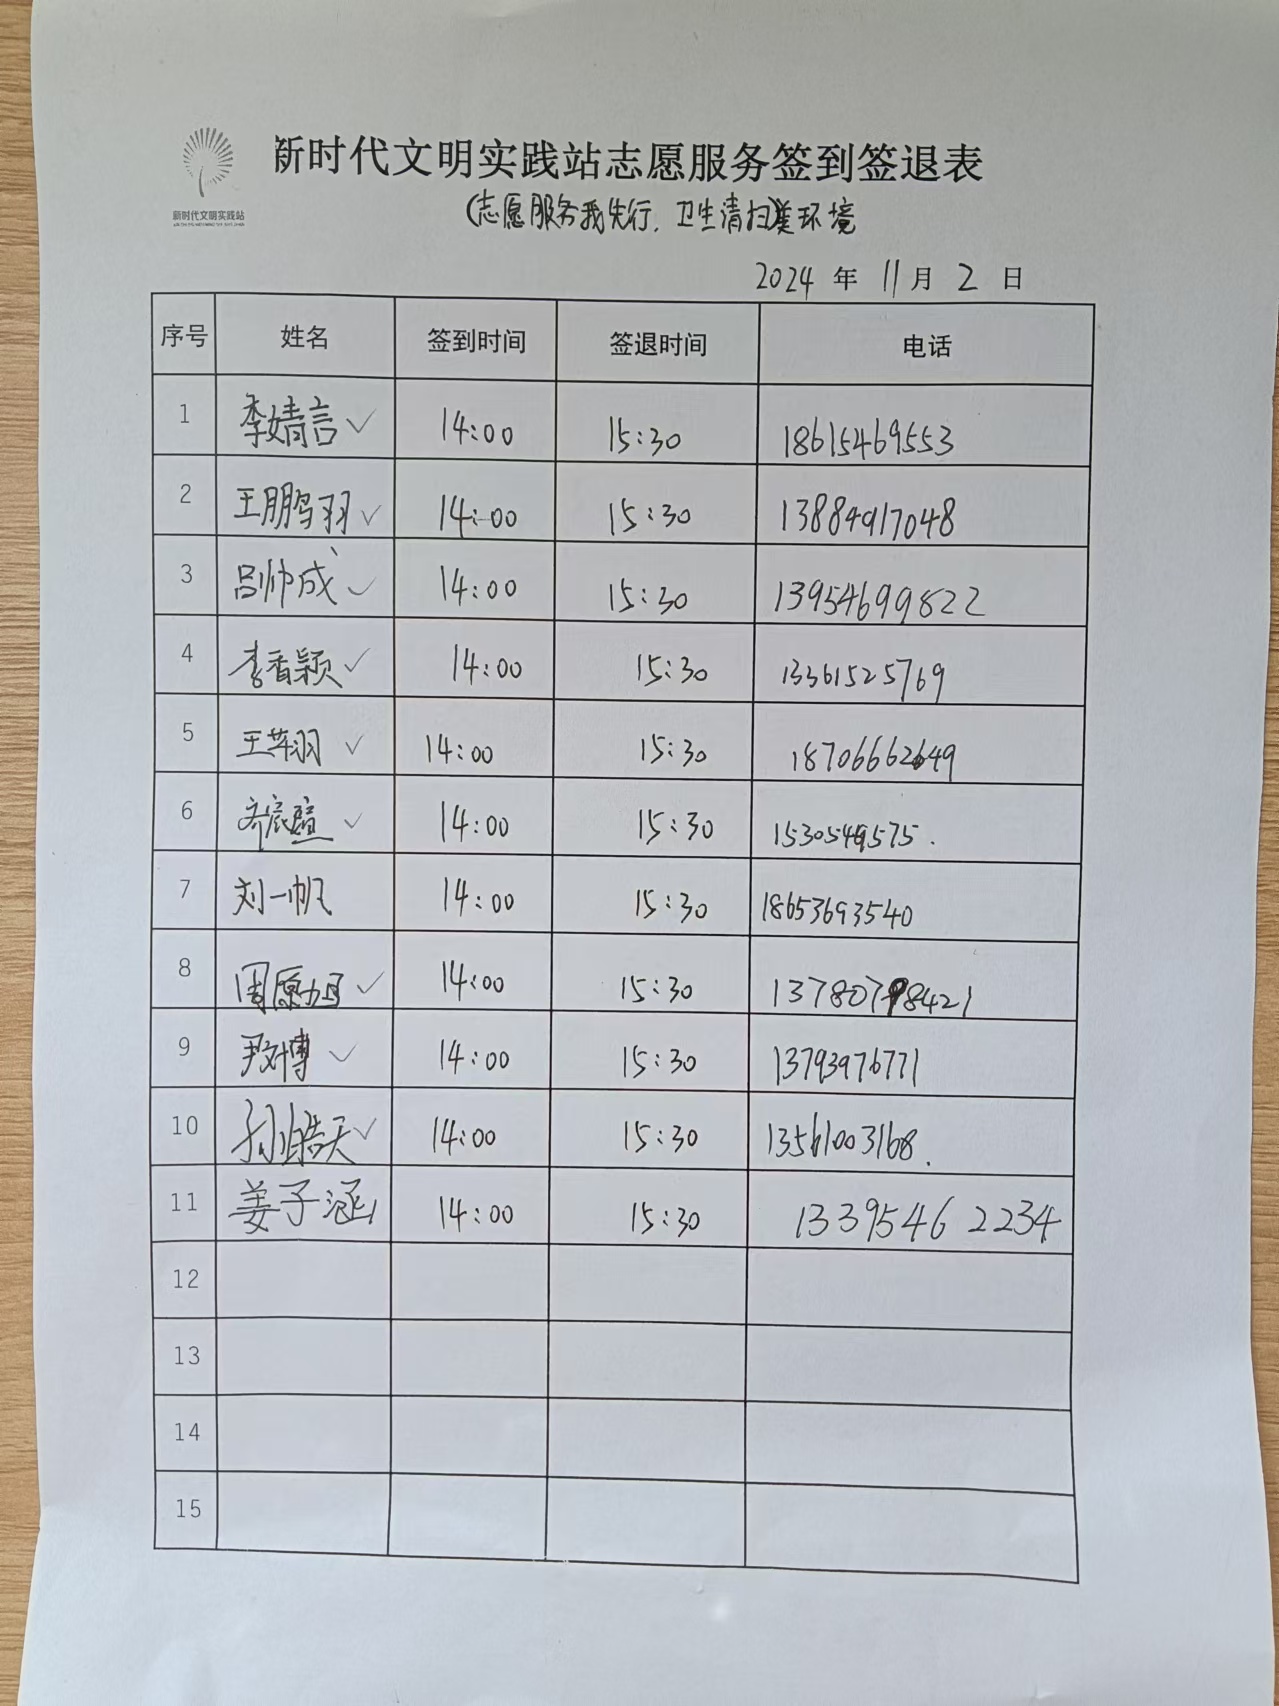 新时代文明实践站志愿服务签到签退表
新时代文明实践站
(志愿服务我先行,卫生清扫美环境
2024 年 11 月 2 日
序号 姓名 签到时间 签退时间 电话
1 李婧言 ✓ 14:00 15:30 18615469553
2 王鹏羽 ✓ 14:00 15:30 13884917048
3 吕帅成 ✓ 14:00 15:30 13954699822
4 李香颖 ✓ 14:00 15:30 13361525769
5 王苹羽 ✓ 14:00 15:30 18706662649
6 齐宸煊 ✓ 14:00 15:30 1530549575.
7 刘一帆 14:00 15:30 18653693540
8 周原旭 ✓ 14:00 15:30 13780798421
9 尹文博 ✓ 14:00 15:30 13793976771
10 孙皓天 ✓ 14:00 15:30 13561003168.
11 姜子涵 14:00 15:30 13395462234
12
13
14
15